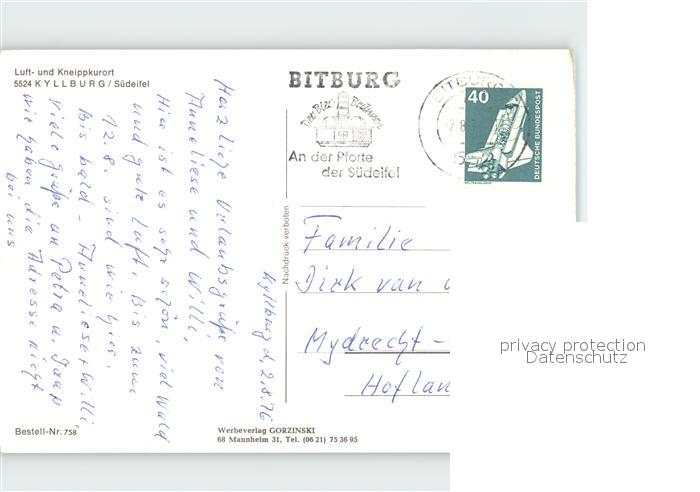 Luft- und Kneippkurort
5524 KYLLBURG / Südeifel
Herzliche Urlaubsgrüße von
Anneliese und Willi.
Hier ist es sehr schön, viel Wald
und gute Luft. Bis zum
12.8. sind wir hier.
Bis bald - Anneliese + Willi,
viele grüße an Petra u. Jaap
wir haben die Adresse nicht
bei uns
Kyllburg d. 2.8.76
Bestell-Nr. 758
BITBURG
An der Pforte
der Südeifel
BITBURG
40
DEUTSCHE BUNDESPOST
Nachdruck verboten
Familie
Dirk van
Mydrecht-
Hollan
Werbeverlag GORZINSKI
68 Mannheim 31, Tel. (06 21) 75 36 95
privacy protection
Datenschutz